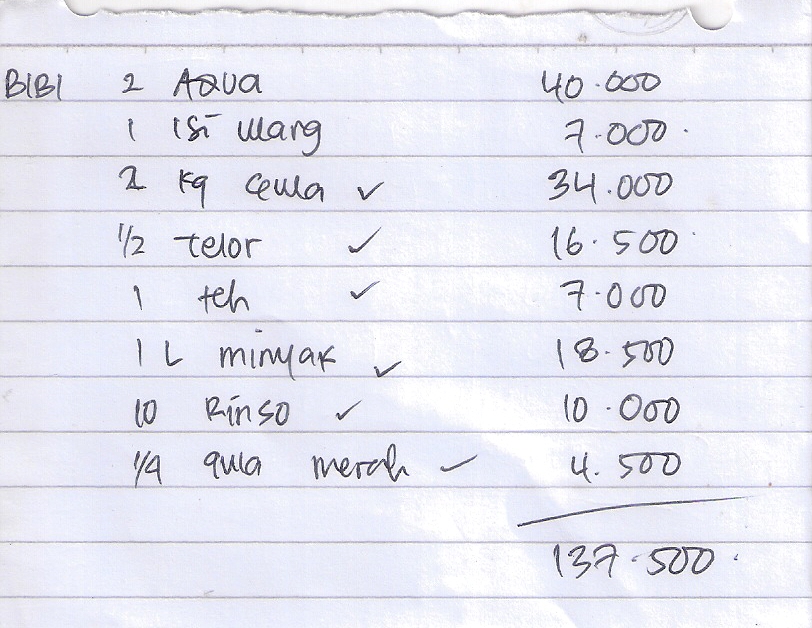 BIBI 2 AQUA 40.000
1 isi Warg 7.000.
2 kg Gula ✓ 34.000
1/2 telor ✓ 16.500
1 teh ✓ 7.000
1 L minyak ✓ 18.500
10 Rinso ✓ 10.000
1/4 gula merah ✓ 4.500
137.500.